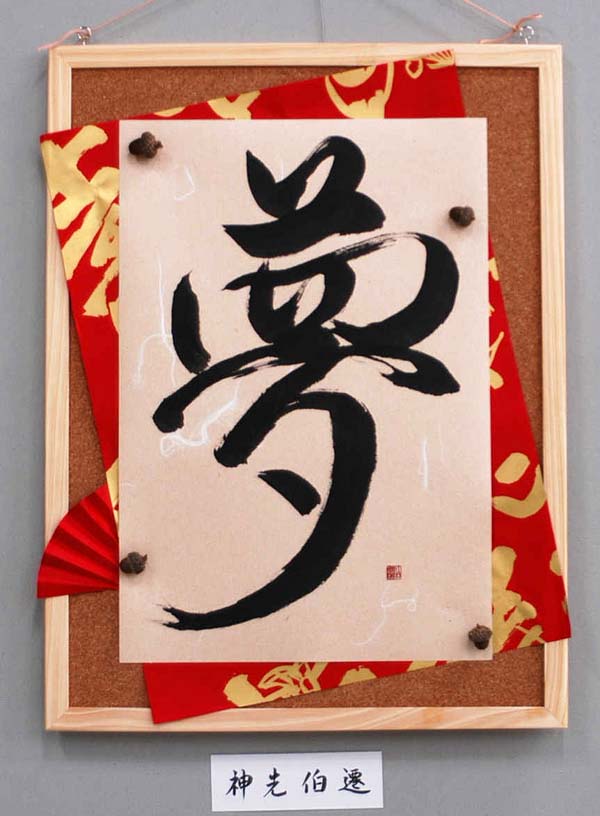 夢
神先伯遷